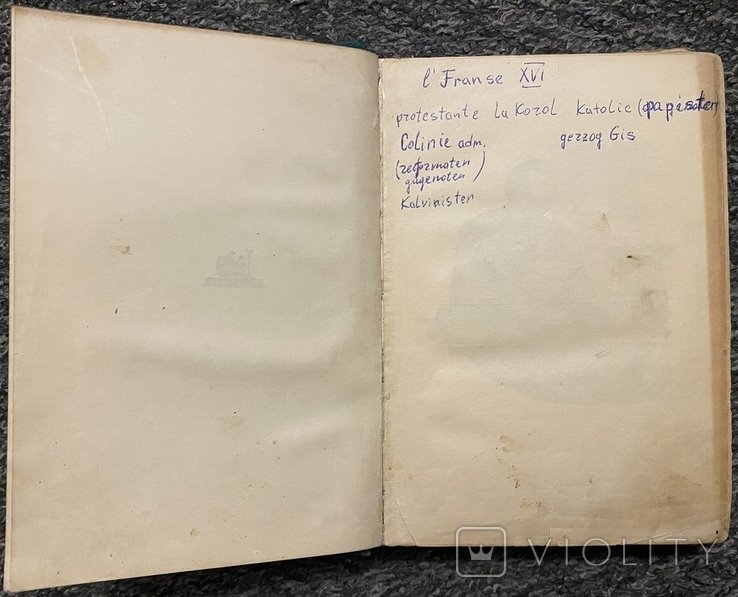 l'Franse XVI
protestante la Korol Katolic (papisten)
Colinie adm. gerzog Gis
(reformaten
gugenoten)
Kalvinisten
VIOLITY